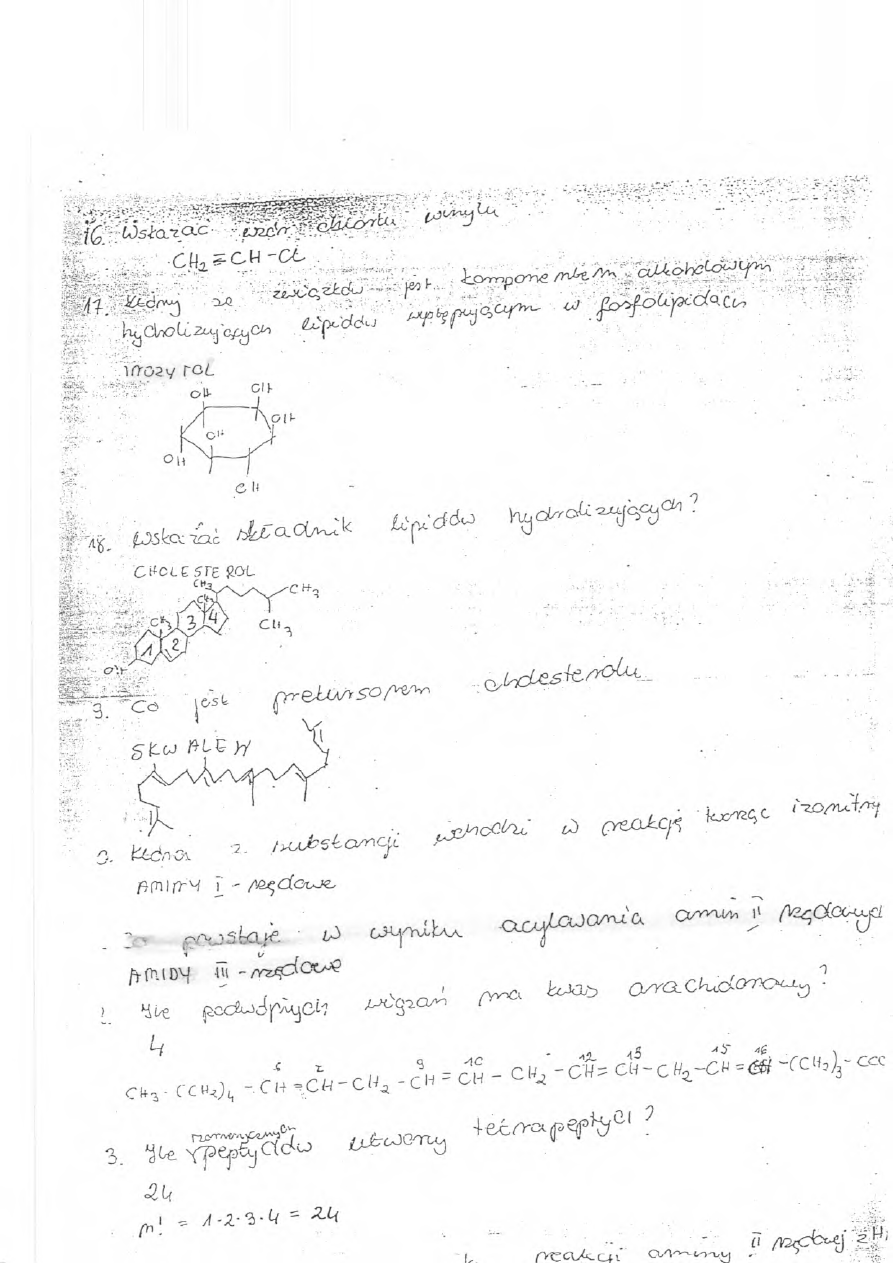 16. Wskazać wzór chlorku winylu
CH2=CH-Cl
17. Który ze związków jest komponentem alkoholowym
hydrolizujących lipidów występującym w fosfolipidach
INOZYTOL
OH OH
OH OH
OH
OH
18. Wskazać składnik lipidów hydrolizujących?
CHOLESTEROL
CH3 CH3
CH3 CH3 CH3
1 2 3 4
OH
9. Co jest prekursorem cholesterolu
SKWALEN
0. Która z substancji wchodzi w reakcję tworząc izonitry
AMINY I-rzędowe
Co powstaje w wyniku acylowania amin II rzędowych
AMIDY III-rzędowe
Ile podwójnych wiązań ma kwas arachidonowy?
4
6 9 10 12 13 15 16
CH3-(CH2)4-CH=CH-CH2-CH=CH-CH2-CH=CH-CH2-CH=CH-(CH2)3-COO
3. Ile izomerycznych peptydów utworzy tetrapeptyd?
24
n! = 1·2·3·4 = 24
reakcji aminy II rzędowej z H